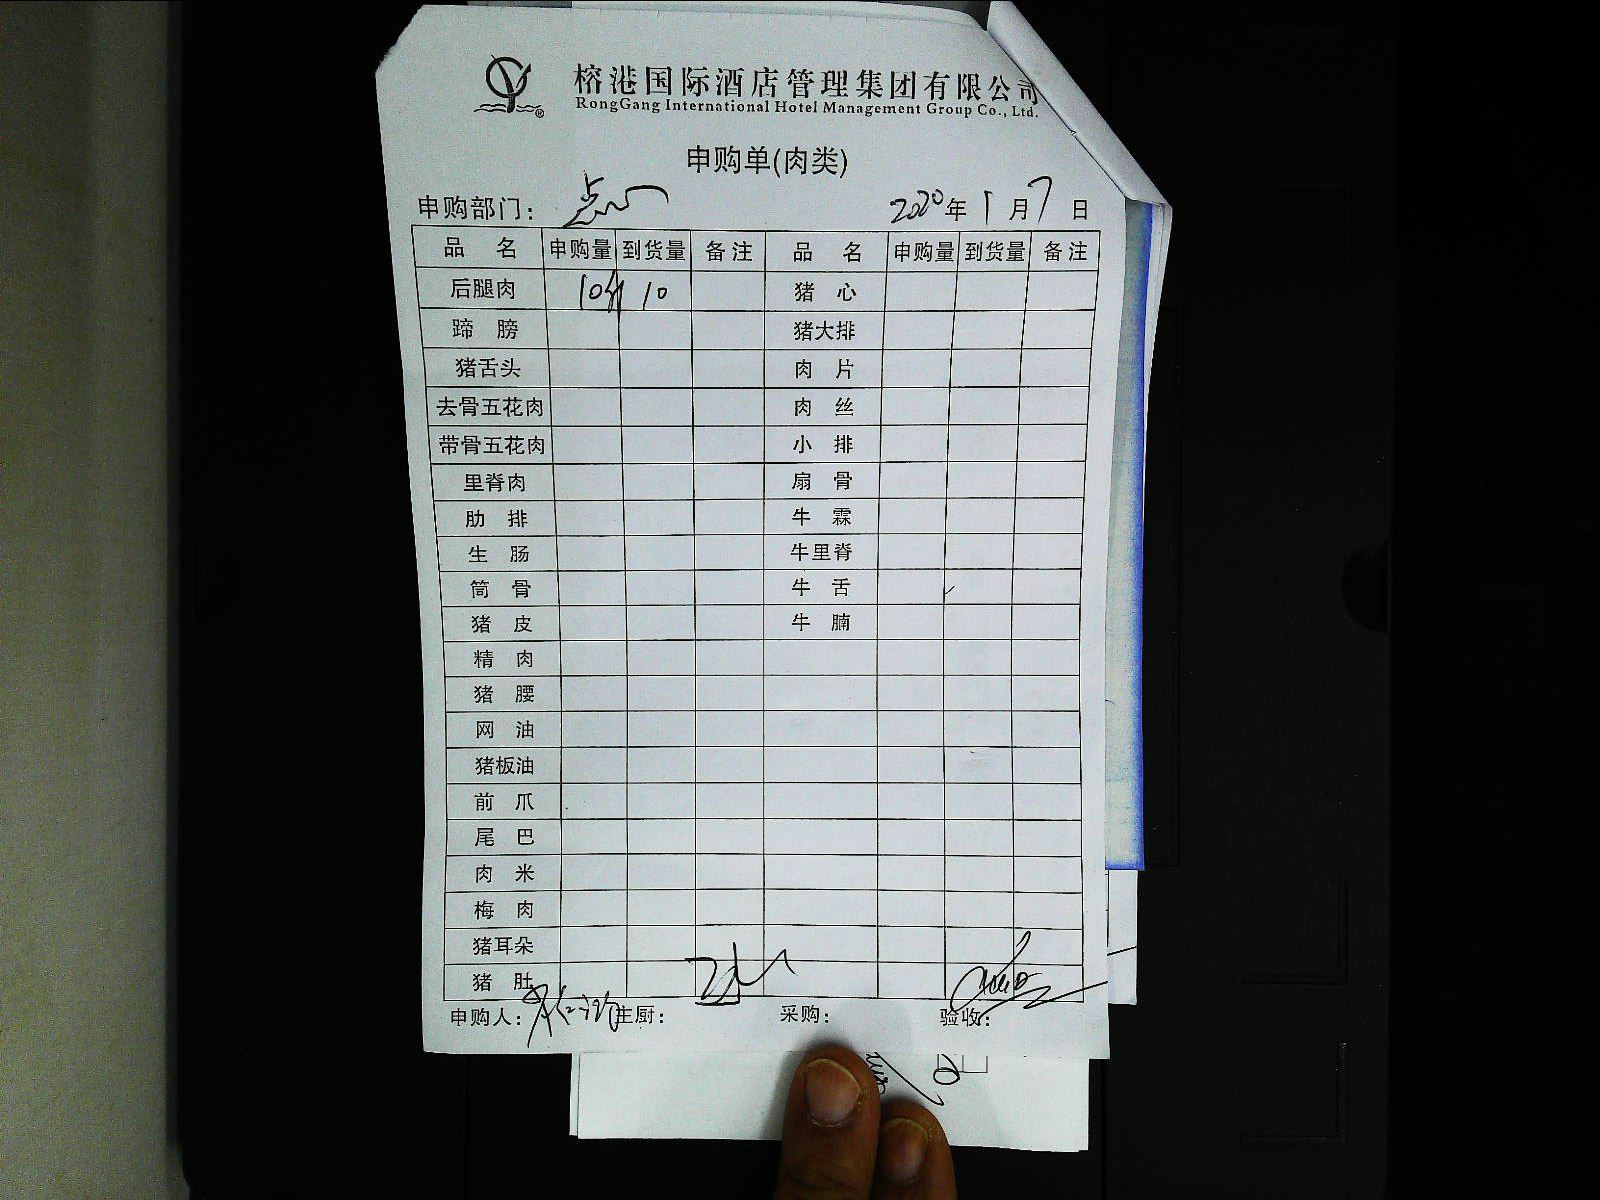 榕港国际酒店管理集团有限公司
RongGang International Hotel Management Group Co., Ltd.
®
申购单(肉类)
申购部门： 点心 2020年 1月 7日
品 名 申购量 到货量 备注 品 名 申购量 到货量 备注
后腿肉 10斤 10 猪 心
蹄 膀 猪大排
猪舌头 肉 片
去骨五花肉 肉 丝
带骨五花肉 小 排
里脊肉 扇 骨
肋 排 牛 霖
生 肠 牛里脊
筒 骨 牛 舌
猪 皮 牛 腩
精 肉
猪 腰
网 油
猪板油
前 爪
尾 巴
肉 米
梅 肉
猪耳朵
猪 肚
申购人： 主厨： 采购： 验收：